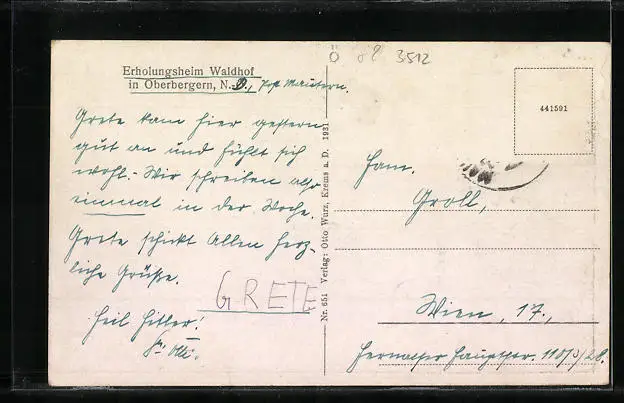 Ö 3512
Erholungsheim Waldhof
in Oberbergern, N.D., Post Mautern.
Grete kam hier gestern
gut an und fühlt sich
wohl.- Wir schreiben also
einmal in der Woche.
Grete schickt Allen herz-
liche Grüße.
GRETE
Heil Hitler!
Nr. 651 Verlag: Otto Wurz, Krems a. D. 1931
441591
Fam.
Groll,
Wien, 17.,
Hernalser Hauptstr. 110/3/28.